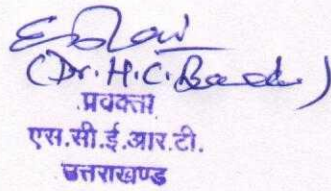 (Dr. H.C.
प्रवक्ता
एस.सी.ई.आर.टी.
उत्तराखण्ड